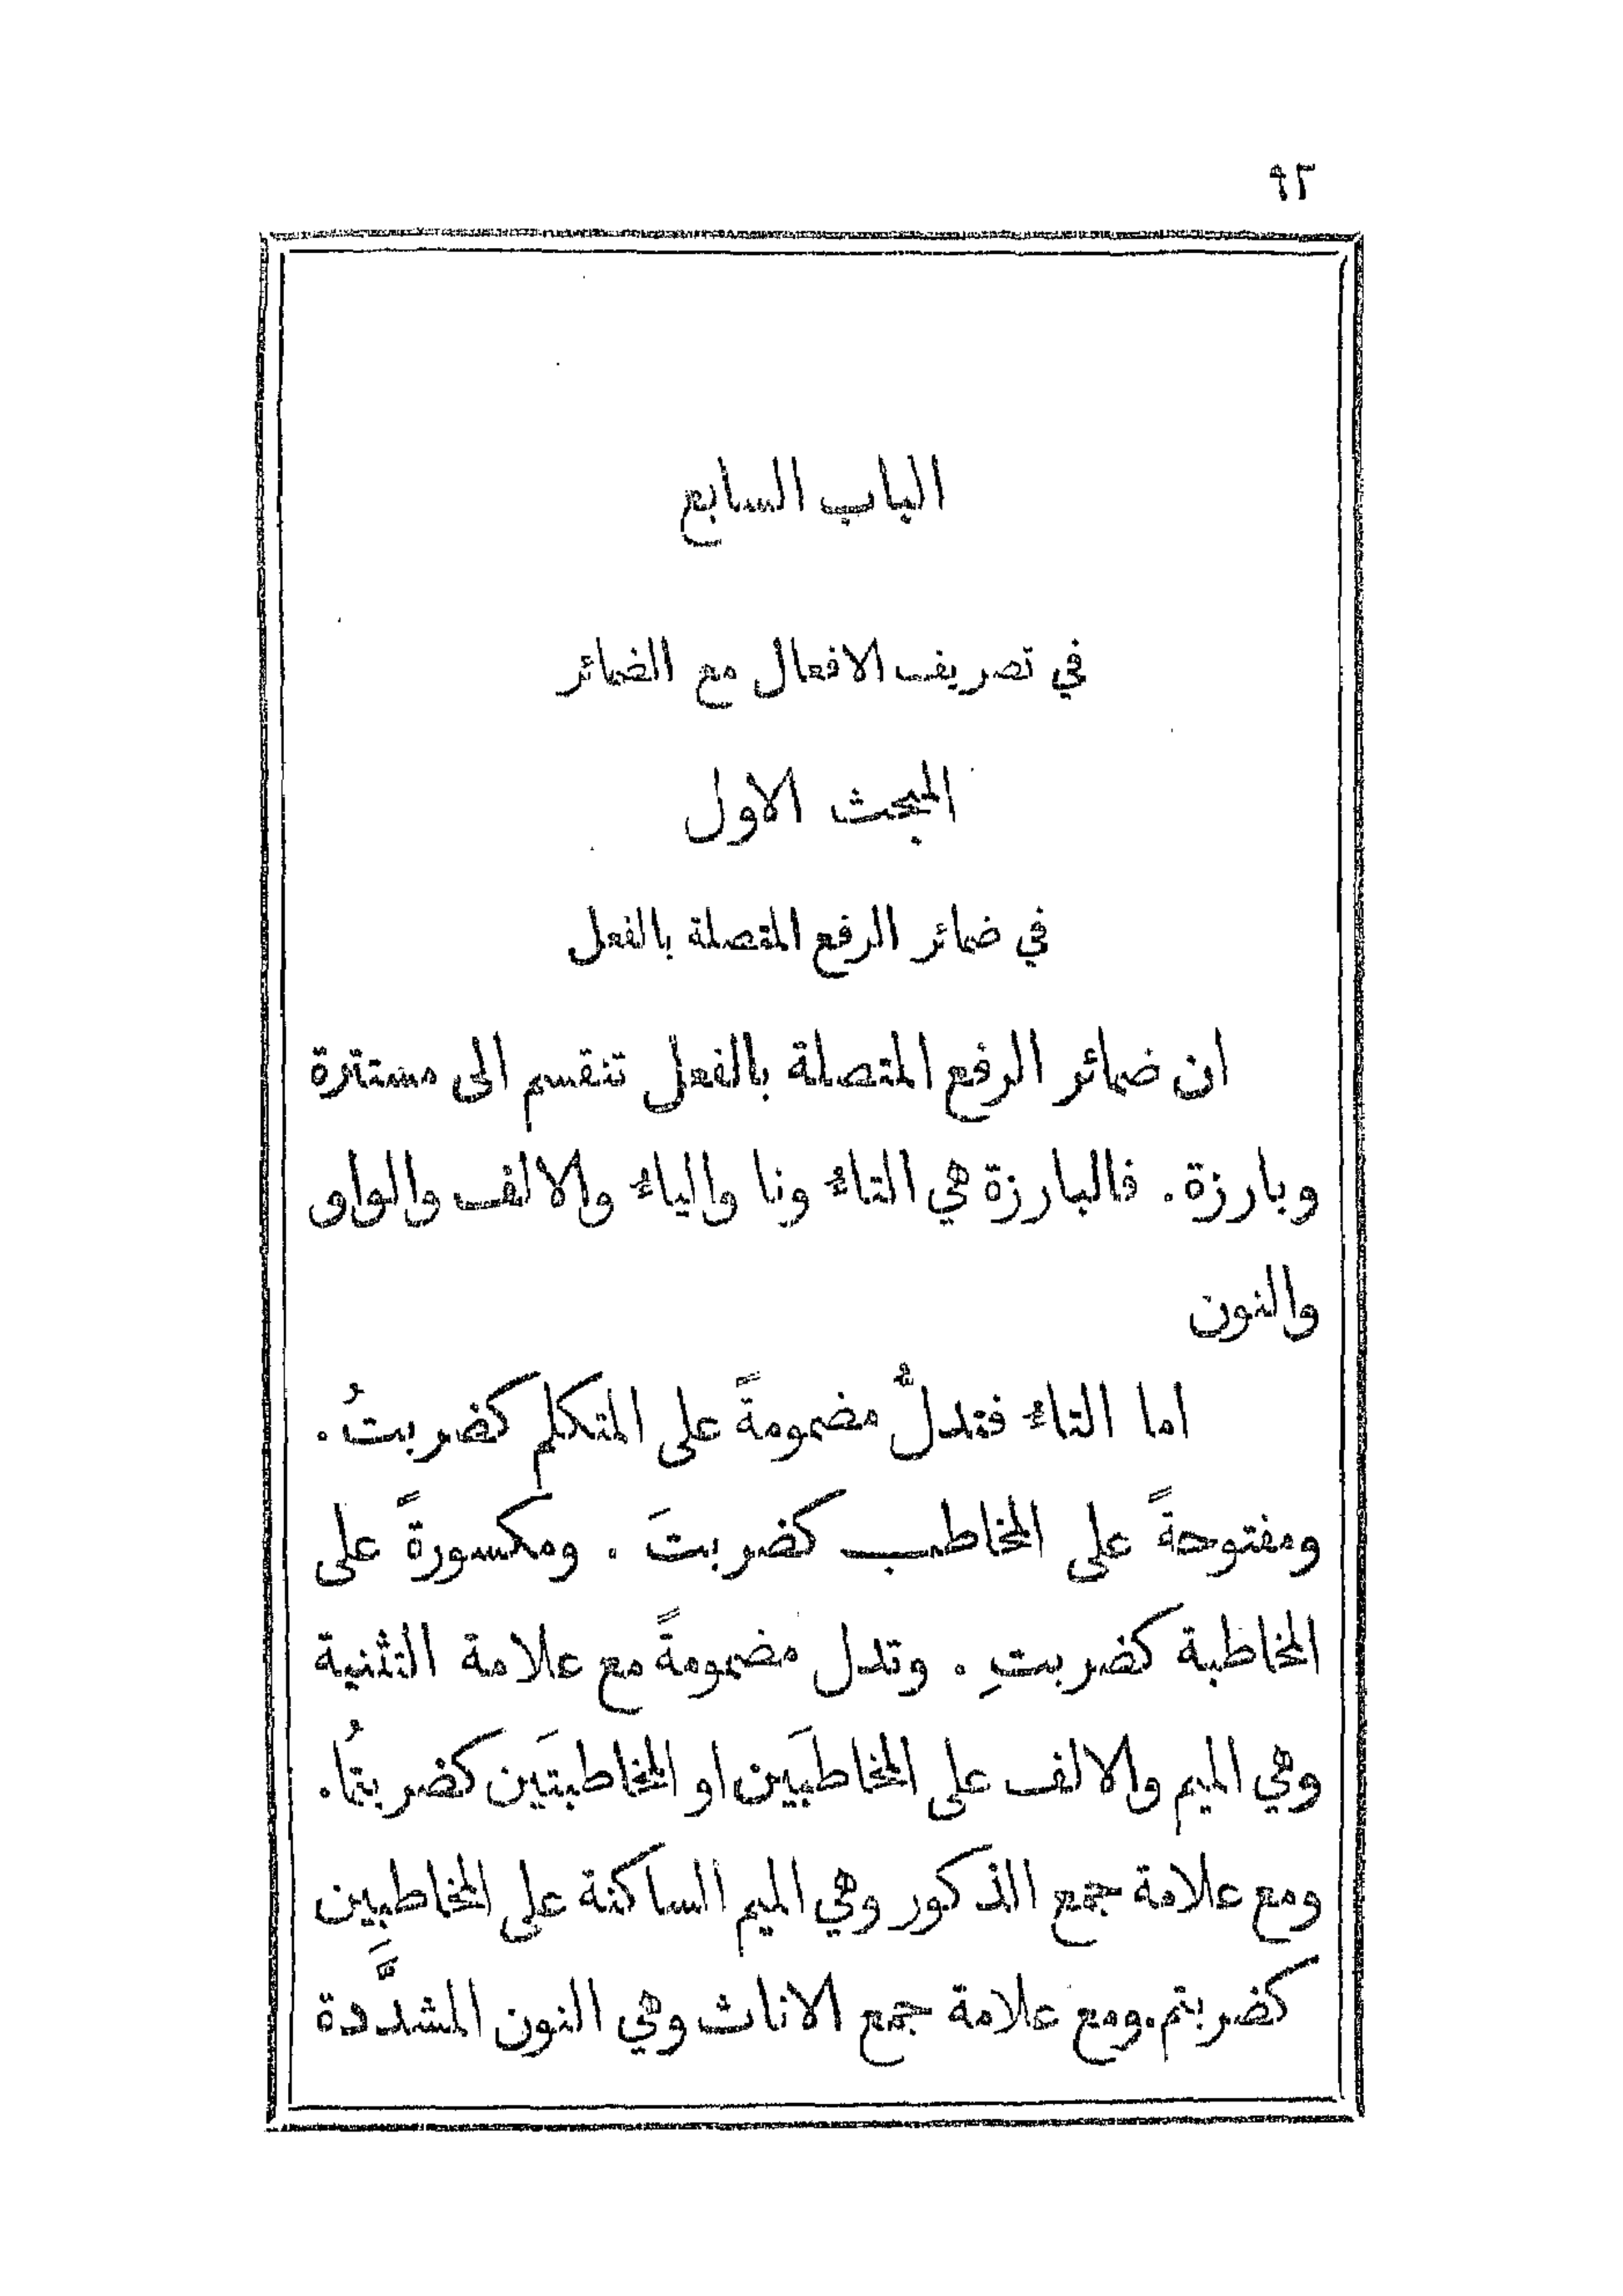 ٩٢
الباب السابع
في تصريف الافعال مع الضمائر
المبحث الاول
في ضمائر الرفع المتصلة بالفعل
ان ضمائر الرفع المتصلة بالفعل تنقسم الى مستترة
وبارزة. فالبارزة هي التاء ونا والياء والالف والواو
والنون
اما التاء فتدلُّ مضمومةً على المتكلم كضربتُ.
ومفتوحةً على المخاطب كضربتَ. ومكسورةً على
المخاطبة كضربتِ. وتدل مضمومةً مع علامة التثنية
وهي الميم والالف على المخاطبَين او المخاطبتَين كضربتُما.
ومع علامة جمع الذكور وهي الميم الساكنة على المخاطبِين
كضربتم. ومع علامة جمع الاناث وهي النون المشدَّدة